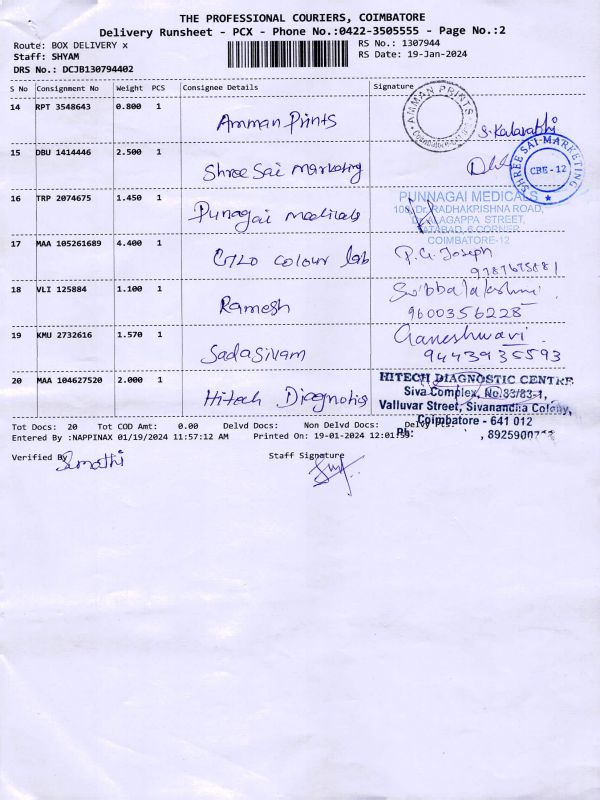 THE PROFESSIONAL COURIERS, COIMBATORE
Delivery Runsheet - PCX - Phone No.:0422-3505555 - Page No.:2
Route: BOX DELIVERY x
RS No.: 1307944
Staff: SHYAM
RS Date: 19-Jan-2024
DRS No.: DCJB130794402
S No Consignment No Weight PCS Consignee Details Signature
14 RPT 3548643 0.800 1 Amman Prints
AMMAN PRINTS
S. Kalavathi
15 DBU 1414446 2.500 1 Shree Sai Marketing
SHREE SAI MARKETING
CBE - 12
16 TRP 2074675 1.450 1 Punagai Medicals
PUNNAGAI MEDICALS
RADHAKRISHNA ROAD,
STREET,
CORNER
COIMBATORE-12
17 MAA 105261689 4.400 1 colour lab P.G. Joseph
18 VLI 125884 1.100 1 Ramesh Subbalakshmi
9600356228
19 KMU 2732616 1.570 1 Sadasivam Ganeshwari
9443935593
20 MAA 104627520 2.000 1 Hitech Diagnotis
HITECH DIAGNOSTIC CENTRE
Siva Complex, No.83/83-1,
Valluvar Street, Sivanandha Colony,
Coimbatore - 641 012
Ph: , 8925900
Tot Docs: 20 Tot COD Amt: 0.00 Delvd Docs: Non Delvd Docs:
Entered By :NAPPINAX 01/19/2024 11:57:12 AM Printed On: 19-01-2024
Verified By Staff Signature